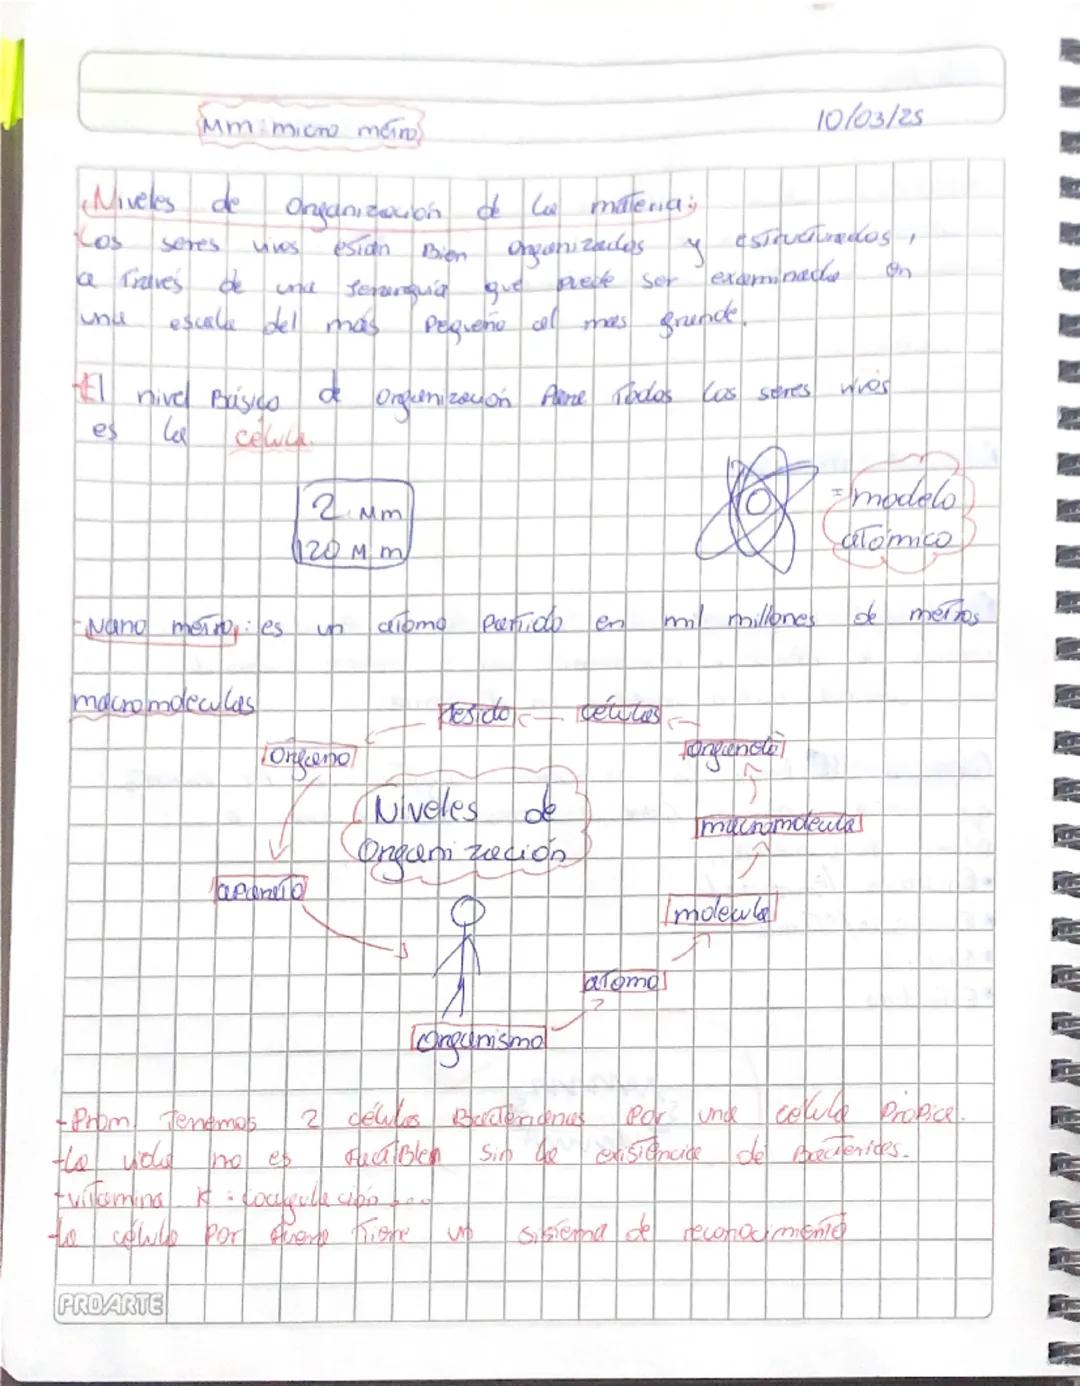 Mm: micro metro
10/03/25
Niveles de Organización de la materia:
Los seres vivos están Bien Organizados y estructurados,
a Través de una Jerarquía que puede ser examinada en
una escala del más Pequeño al mas grande.
El nivel Básico de Organización tiene Todos los seres vivos
es la célula.
2 Mm
120 M m
= modelo
atómico
-Nano metro: es un atomo Partido en mil millones de metros
macromoleculas
Tesido
células
Organo
organelo
Niveles de
Organización
macromolecula
aparato
molecula
atomo
Organismo
-Prom Tenemos 2 células Bacterianas Por una celula Propia.
-La vida no es sin la existencia de Bacterias.
-vitamina K: coagulación...
-La célula Por fuera Tiene un sistema de reconocimiento
PROARTE